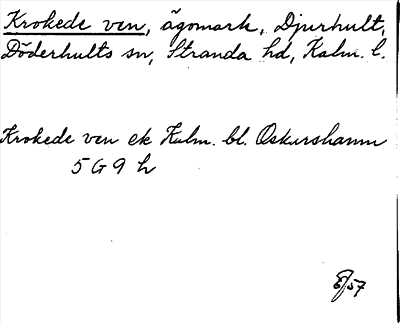 Krokede ven, ägomark, Djurhult,
Döderhults sn, Stranda hd, Kalm. l.
Krokede ven ek Kalm. bl. Oskarshamn
5 G 9 h
/57